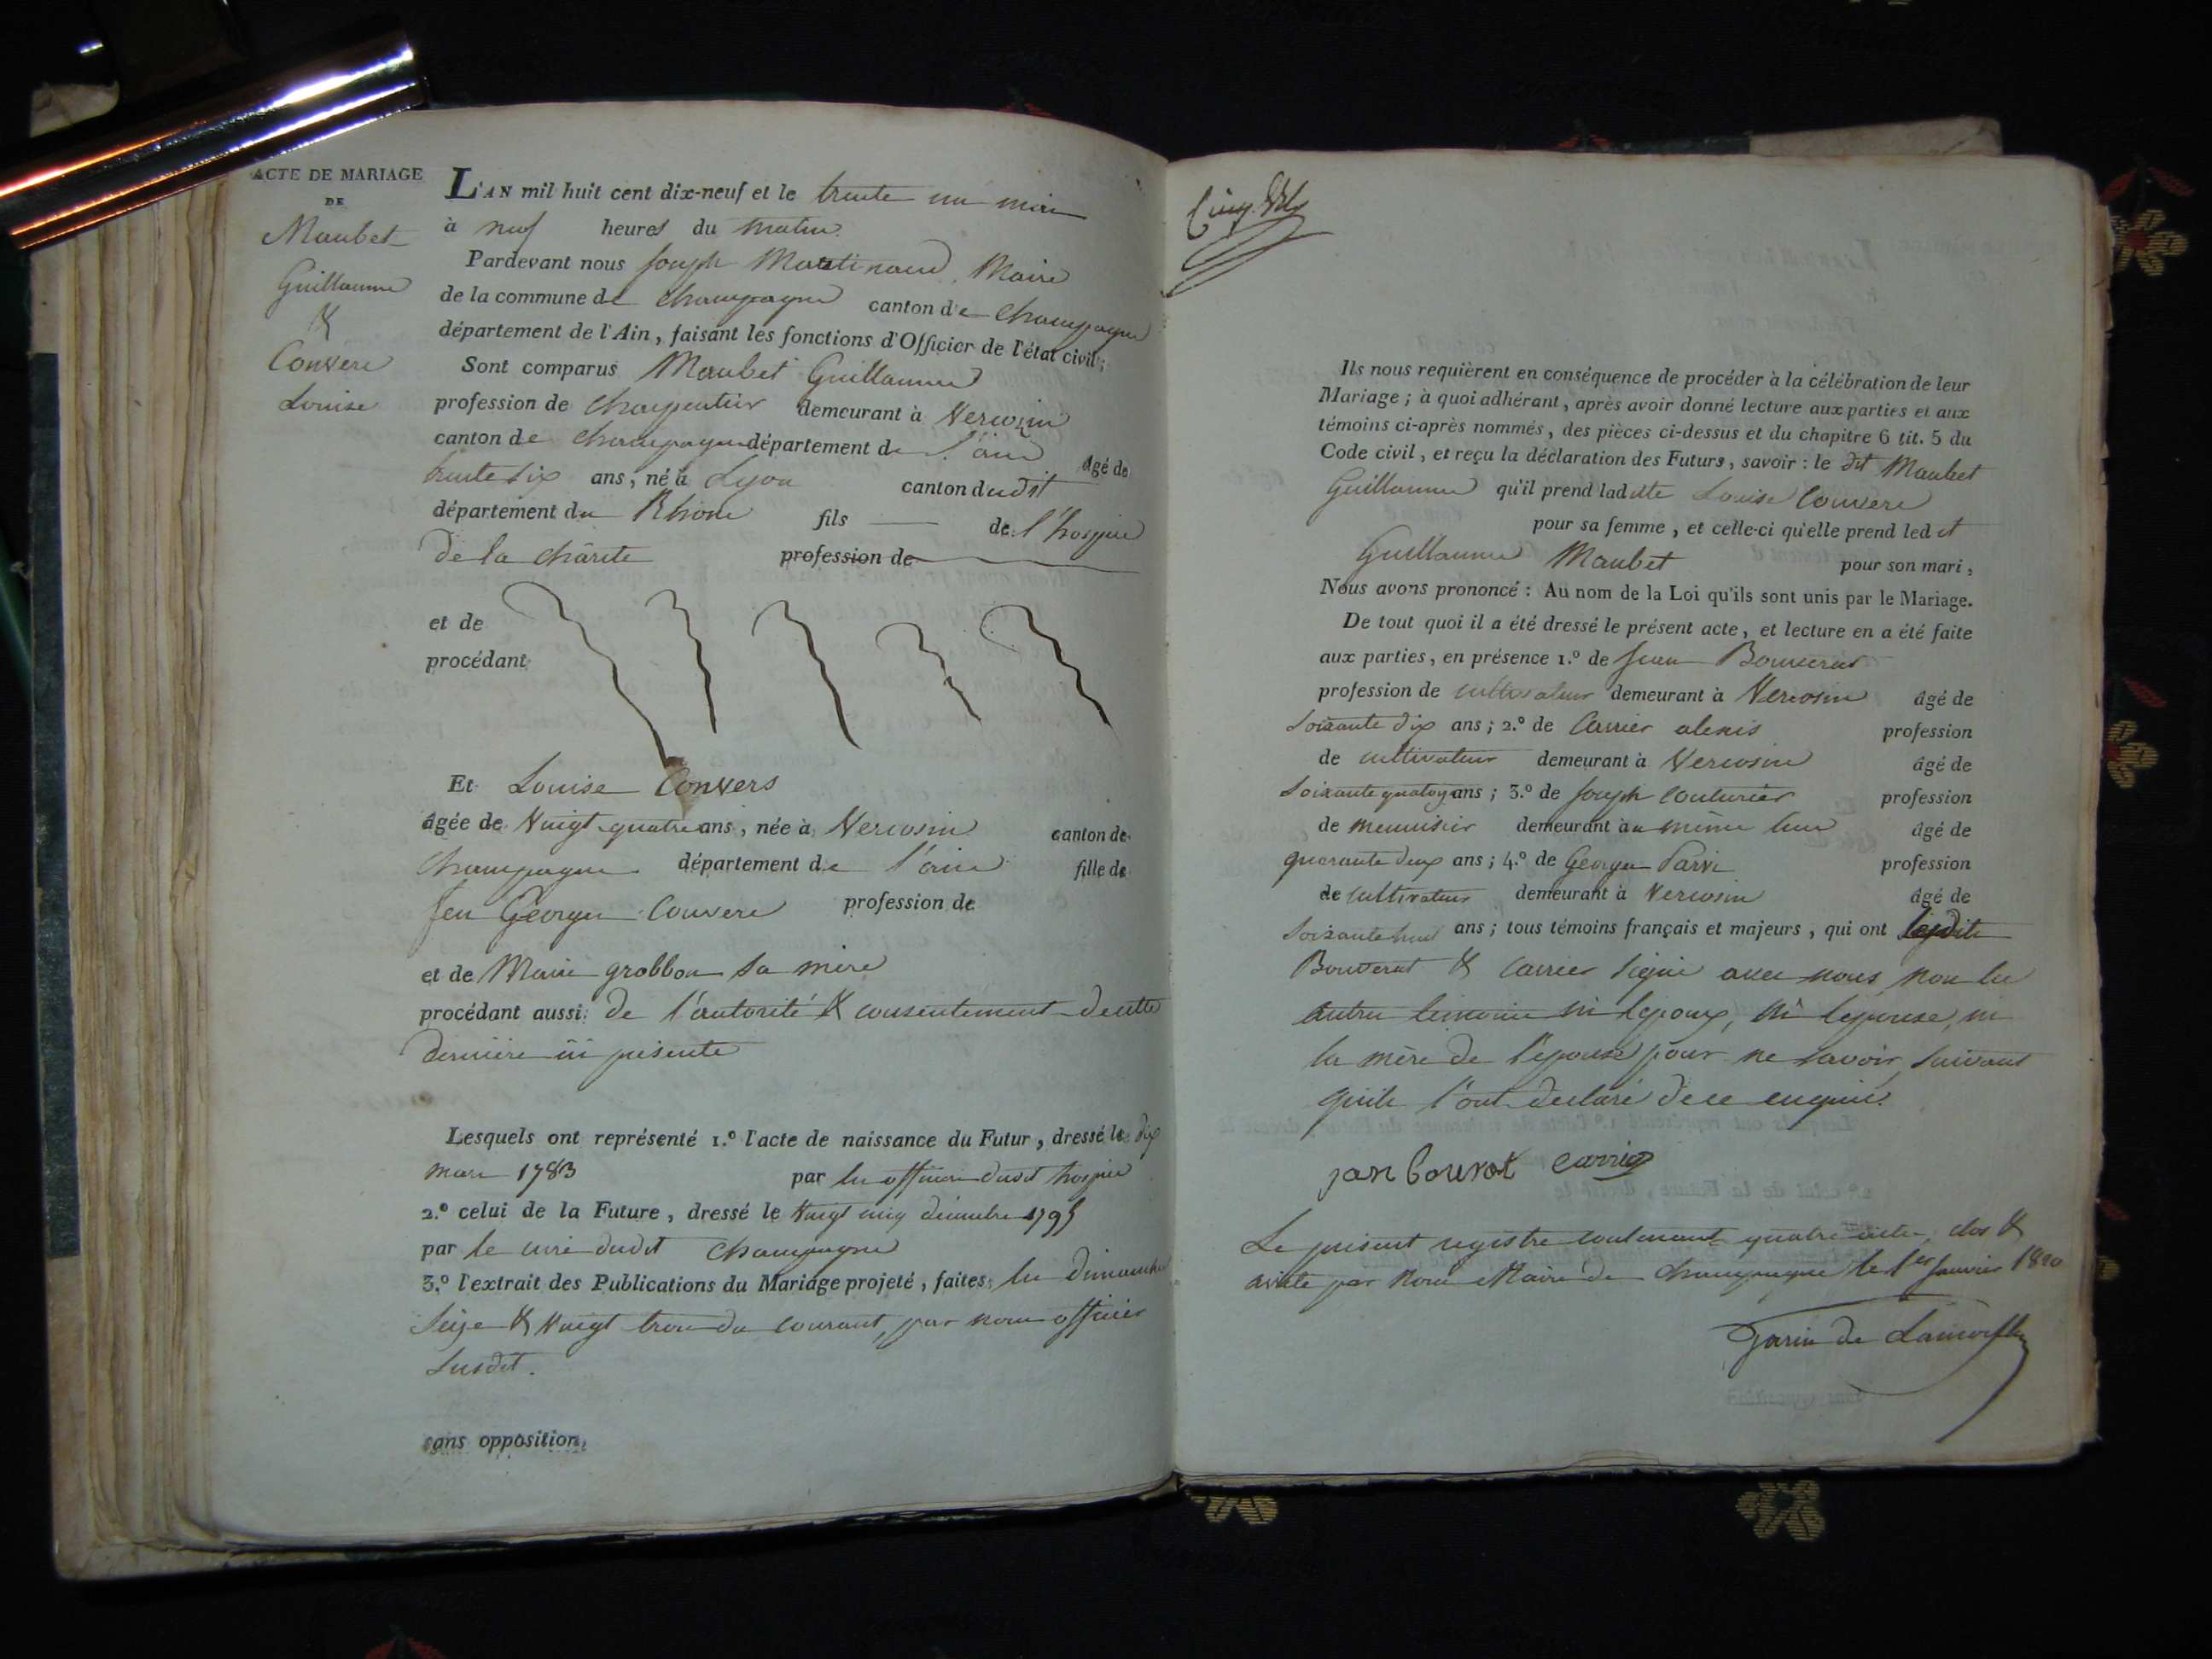 ACTE DE MARIAGE
DE
Maubet
Guillaume
&
Convere
Louise
L'AN mil huit cent dix-neuf et le trente un mai
à neuf heures du matin.
Pardevant nous Joseph Martinand, Maire
de la commune de Champagne canton de Champagne
département de l'Ain, faisant les fonctions d'Officier de l'état civil;
Sont comparus Maubet Guillaume
profession de Charpentier demeurant à Vercosin
canton de Champagne département de l'ain âgé de
trente six ans, né à Lyon canton dudit
département du Rhône fils de l'hospice
de la charité profession de
et de
procédant
Et Louise Convers
âgée de Vuigt quatre ans, née à Vercosin canton de
Champagne département de l'ain fille de
feu George Convere profession de
et de Marie grobbon sa mère
procédant aussi de l'autorité & consentement de cette
dernière ici présente
Lesquels ont représenté 1.º l'acte de naissance du Futur, dressé le dix
mars 1783 par les officiers dudit hospice
2.º celui de la Future, dressé le Vuigt cinq décembre 1795
par le curé dudit Champagne
3.º l'extrait des Publications du Mariage projeté, faites les dimanches
Seize & Vuigt trois du courant, par nous officier
susdit.
sans opposition,
Ils nous requièrent en conséquence de procéder à la célébration de leur
Mariage; à quoi adhérant, après avoir donné lecture aux parties et aux
témoins ci-après nommés, des pièces ci-dessus et du chapitre 6 tit. 5 du
Code civil, et reçu la déclaration des Futurs, savoir : le dit Maubet
Guillaume qu'il prend laditte Louise Convere
pour sa femme, et celle-ci qu'elle prend ledit
Guillaume Maubet pour son mari,
Nous avons prononcé : Au nom de la Loi qu'ils sont unis par le Mariage.
De tout quoi il a été dressé le présent acte, et lecture en a été faite
aux parties, en présence 1.º de Jean Bouverat
profession de cultivateur demeurant à Vercosin âgé de
soixante dix ans; 2.º de Carrier alexis profession
de cultivateur demeurant à Vercosin âgé de
soixante quatorze ans; 3.º de Joseph Couturier profession
de menuisier demeurant au même lieu âgé de
quarante deux ans; 4.º de George Parve profession
de cultivateur demeurant à Vercosin âgé de
soixante huit ans; tous témoins français et majeurs, qui ont lesdits
Bouverat & Carrier signé avec nous, non les
autres témoins ni l'epoux, ni l'epouse, ni
la mère de l'epouse pour ne savoir, suivant
qu'ils l'ont déclaré de ce enquis.
jan bouvrot carrier
Le présent registre contenant quatre actes, clos &
arreté par Nous Maire de Champagne le 1er Janvier 1820
Garin de